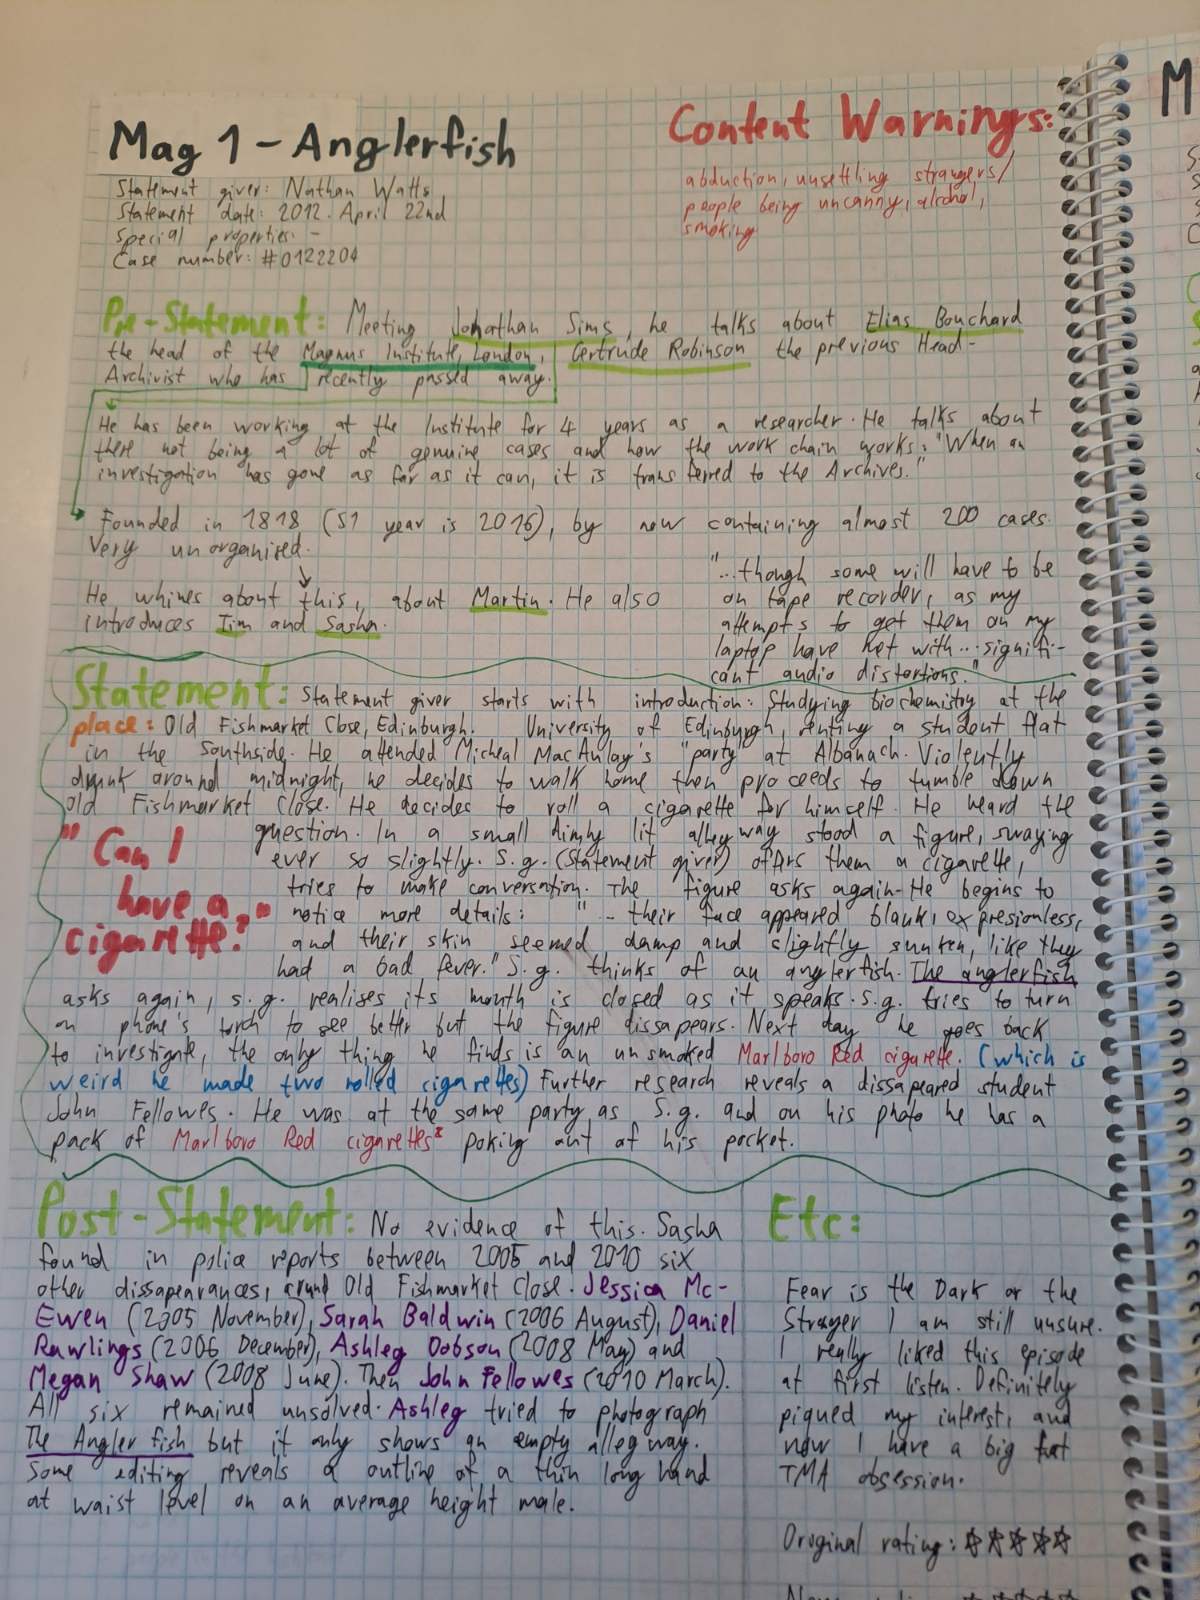 Mag 1 - Anglerfish
Statement giver: Nathan Watts
Statement date: 2012. April 22nd
Special properties: -
Case number: #0122204
Content Warnings:
abduction, unsettling strangers/
people being uncanny, alcohol,
smoking
M
Pre-Statement: Meeting Jonathan Sims, he talks about Elias Bouchard
the head of the Magnus Institute, London, Gertrude Robinson the previous Head-
Archivist who has recently passed away.
He has been working at the Institute for 4 years as a researcher. He talks about
there not being a lot of genuine cases and how the work chain works: "When an
investigation has gone as far as it can, it is transferred to the Archives."
Founded in 1818 (S1 year is 2016), by now containing almost 200 cases.
Very unorganised.
He whines about this, about Martin. He also
introduces Tim and Sasha.
"...though some will have to be
on tape recorder, as my
attempts to get them on my
laptop have met with... signifi-
cant audio distortions."
Statement: Statement giver starts with introduction: Studying biochemistry at the
place: Old Fishmarket Close, Edinburgh. University of Edinburgh, renting a student flat
in the Southside. He attended Micheal MacAulay's "party" at Albanach. Violently
drunk around midnight, he decides to walk home then proceeds to tumble down
Old Fishmarket Close. He decides to roll a cigarette for himself. He heard the
"Can I
have a
cigarette?"
question. In a small dimly lit alleyway stood a figure, swaying
ever so slightly. S.g. (Statement giver) offers them a cigarette,
tries to make conversation. The figure asks again. He begins to
notice more details: "... their face appeared blank, expresionless,
and their skin seemed damp and slightly sunken, like they
had a bad fever." S.g. thinks of an anglerfish. The anglerfish
asks again, s.g. realises its mouth is closed as it speaks. S.g. tries to turn
on phone's torch to see better but the figure dissapears. Next day he goes back
to investigate, the only thing he finds is an unsmoked Marlboro Red cigarette. (which is
weird he made two rolled cigarettes) Further research reveals a dissapeared student
John Fellowes. He was at the same party as S.g. and on his photo he has a
pack of Marlboro Red cigarettes poking out of his pocket.
Post-Statement: No evidence of this. Sasha
found in police reports between 2005 and 2010 six
other dissapearances, around Old Fishmarket Close. Jessica Mc-
Ewen (2005 November), Sarah Baldwin (2006 August), Daniel
Rawlings (2006 December), Ashleg Dobson (2008 May) and
Megan Shaw (2008 June). Then John Fellowes (2010 March).
All six remained unsolved. Ashleg tried to photograph
The Angler fish but it only shows an empty alleg way.
Some editing reveals a outline of a thin long hand
at waist level on an average height male.
Etc:
Fear is the Dark or the
Stranger I am still unsure.
I really liked this episode
at first listen. Definitely
piqued my interest, and
now I have a big fat
TMA obsession.
Original rating: ☆☆☆☆☆